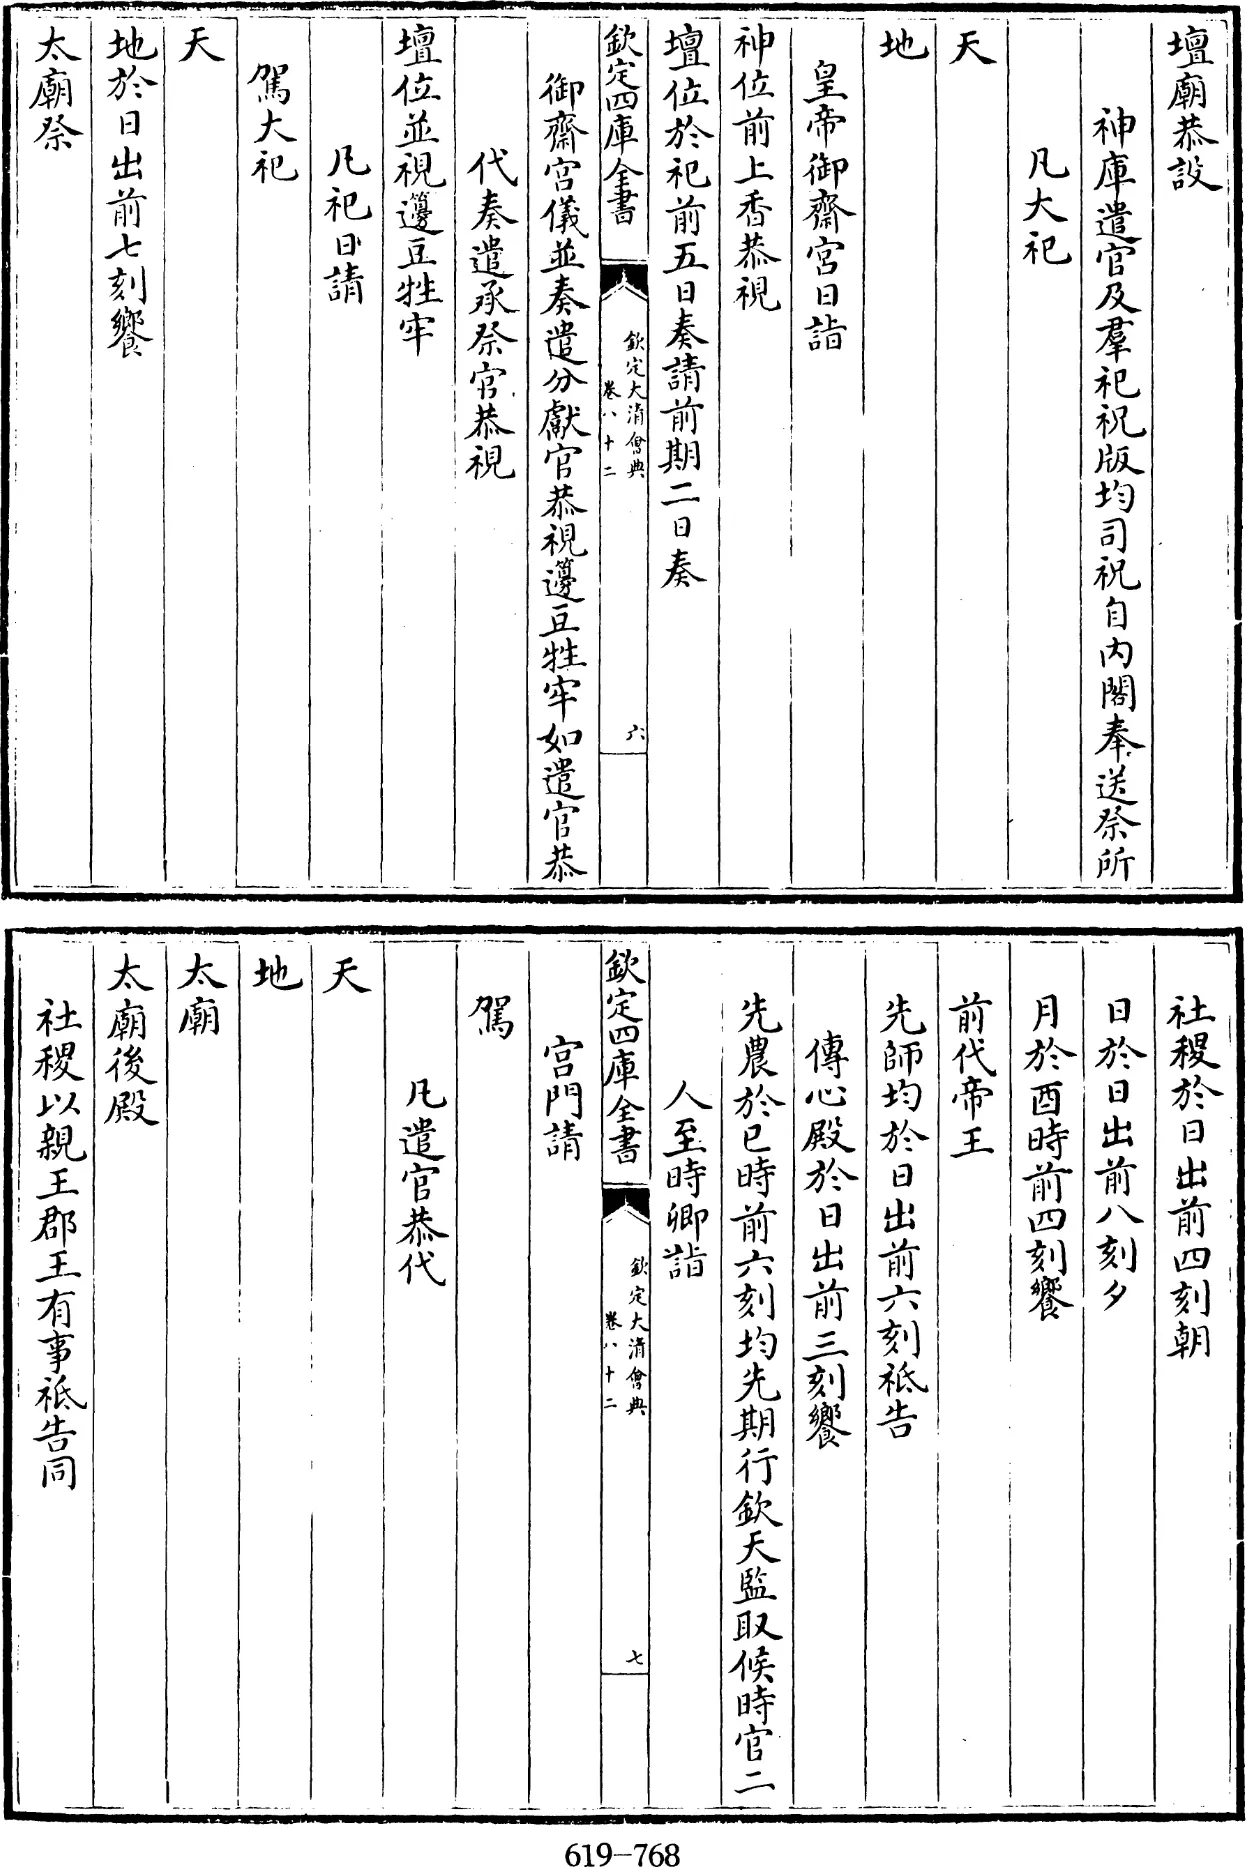 壇廟恭設
神庫遣官及羣祀祝版均司祝自内閣奉送祭所
凡大祀
天
地
皇帝御齋宮日詣
神位前上香恭視
壇位於祀前五日奏請前期二日奏
欽定四庫全書
欽定大清會典
卷八十二
六
御齋宮儀並奏遣分獻官恭視籩豆牲牢如遣官恭
代奏遣承祭官恭視
壇位並視籩豆牲牢
凡祀日請
駕大祀
天
地於日出前七刻饗
太廟祭
社稷於日出前四刻朝
日於日出前八刻夕
月於酉時前四刻饗
前代帝王
先師均於日出前六刻祗告
傳心殿於日出前三刻饗
先農於巳時前六刻均先期行欽天監取候時官二
人至時卿詣
欽定四庫全書
欽定大清會典
卷八十二
七
宫門請
駕
凡遣官恭代
天
地
太廟
太廟後殿
社稷以親王郡王有事祗告同
619-768